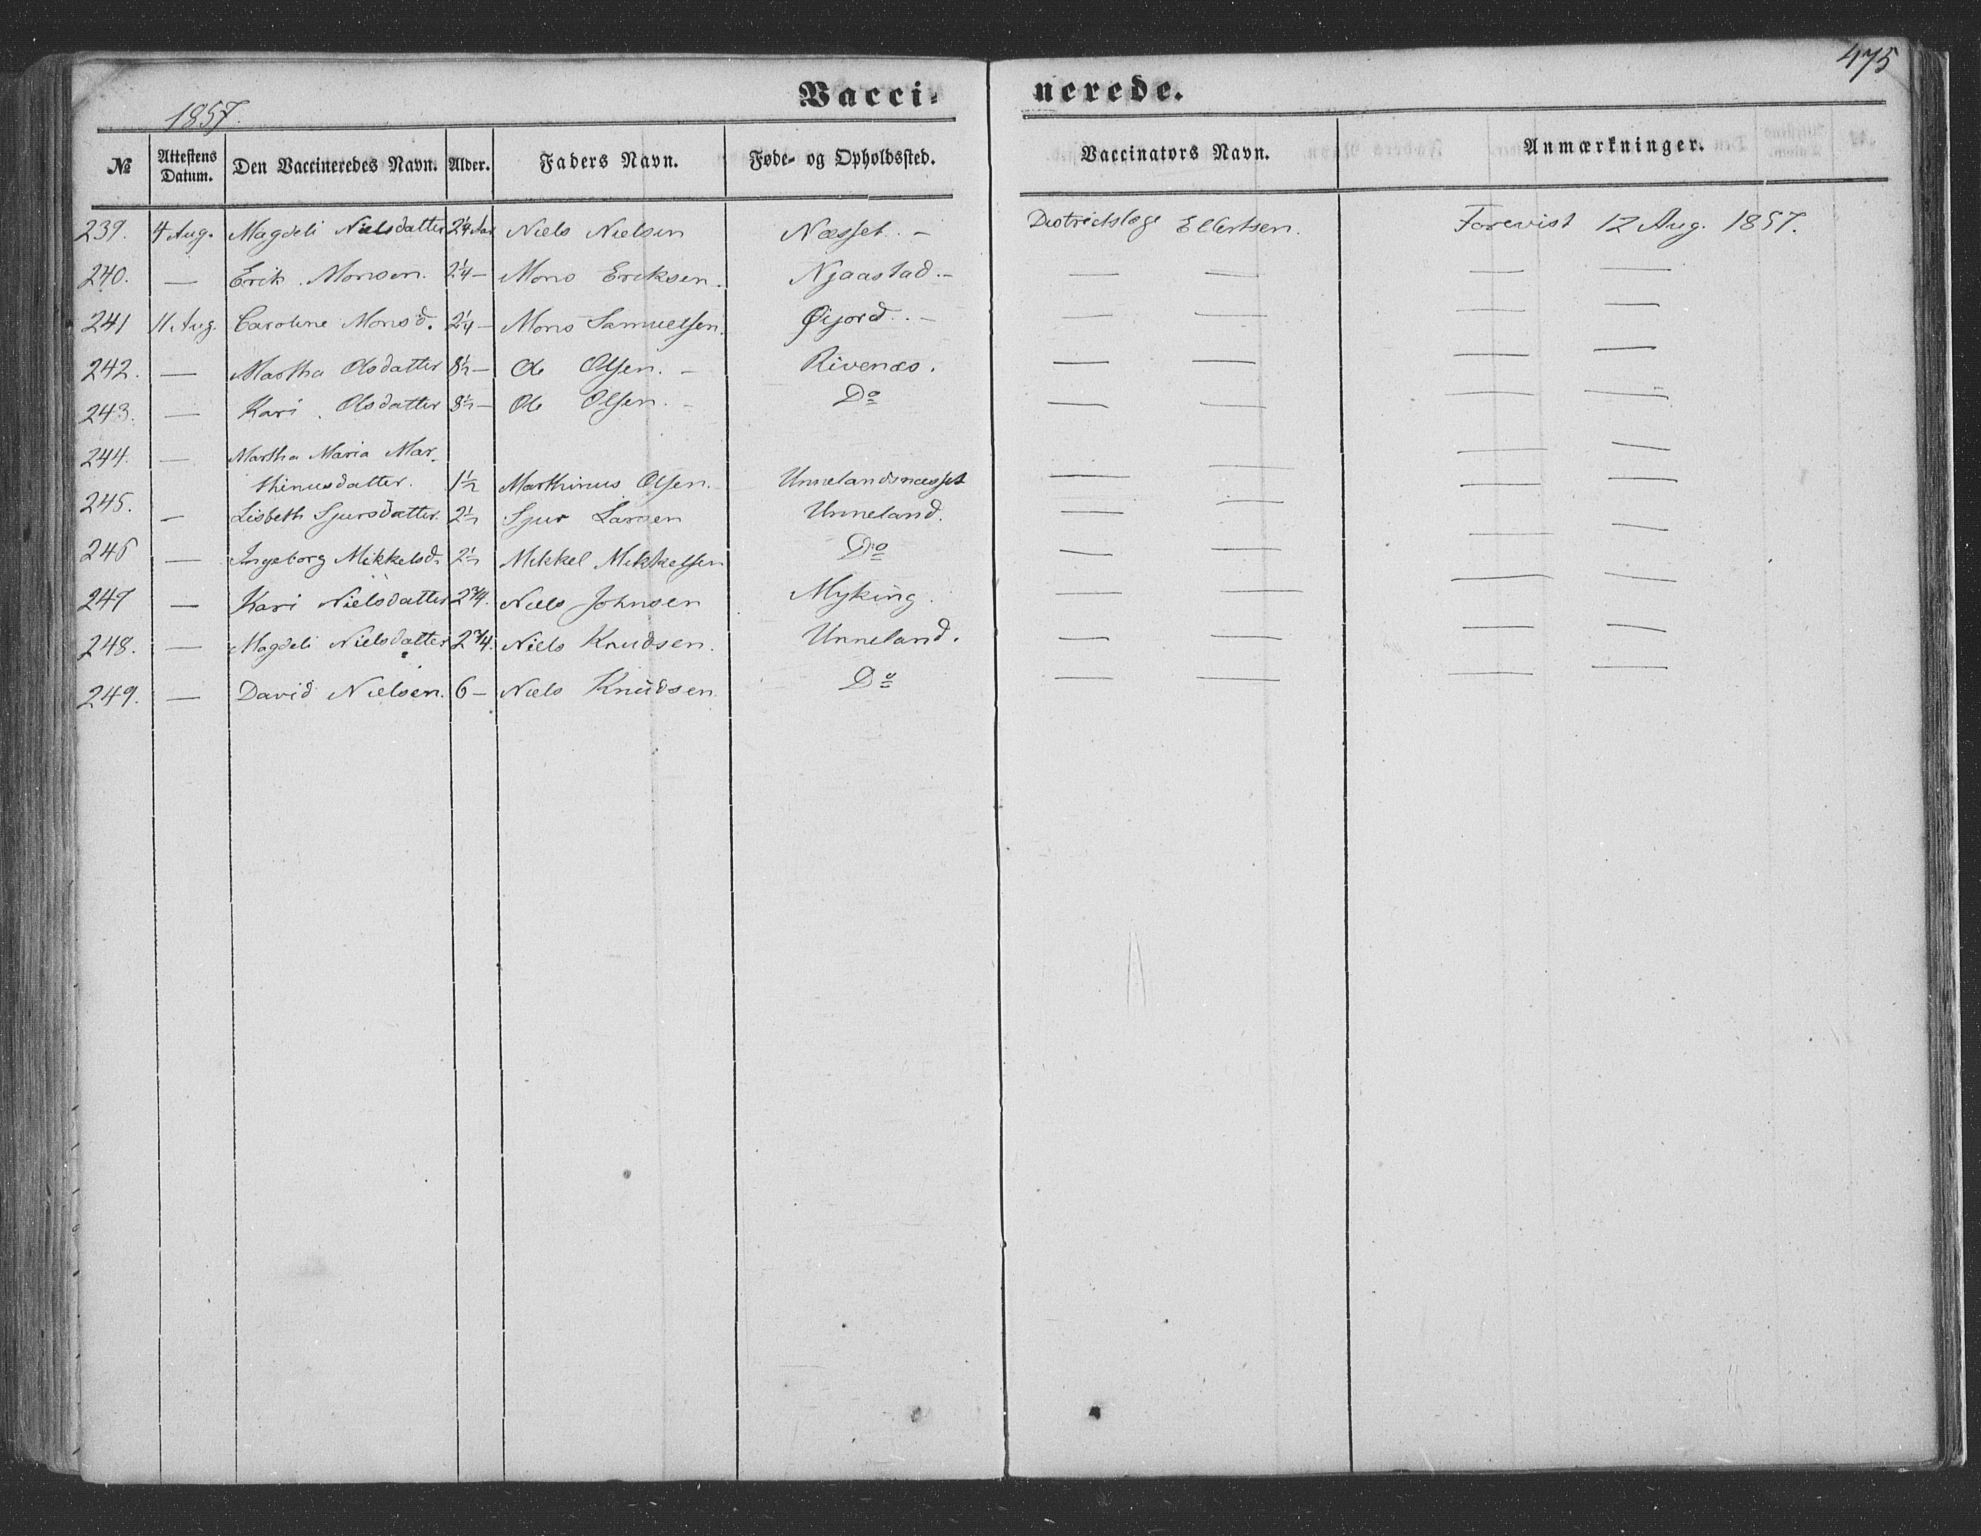 475
1857.
Vacci- nerede.
№ Attestens Datum. Den Vaccineredes Navn. Alder. Faders Navn. Føde- og Opholdssted. Vaccinators Navn. Anmærkninger.
239. 4 Aug. Magdeli Nielsdatter 2¼ Aar Niels Nielsen Næsset. — Districtslæge Ellertsen. Forevist 12 Aug. 1857.
240. — Erik Monsen. 2¼ — Mons Eriksen. Njaastad. — — — — —
241 11 Aug. Caroline Monsd. 2¼ — Mons Samuelsen. Øijord. — — — — —
242. — Martha Olsdatter 8½ — Ole Olsen. — Rivenæs. — — — —
243. — Kari Olsdatter 8½ — Ole Olsen. — Do — — — —
244. — Martha Maria Mar-
thinusdatter. 1½ Marthinus Olsen. Unnelandsnæsset — — — —
245. — Lisbeth Sjursdatter. 2½ Sjur Larsen Unneland. — — — —
246 — Ingeborg Mikkelsd. 2½ Mikkel Mikkelsen Do — — — —
247 — Kari Nielsdatter 2¾. Niels Johnsen Myking. — — — —
248. — Magdeli Nielsdatter 2¾. Niels Knudsen. Unneland. — — — —
249. — David Nielsen. 6 — Niels Knudsen. Do — — — —